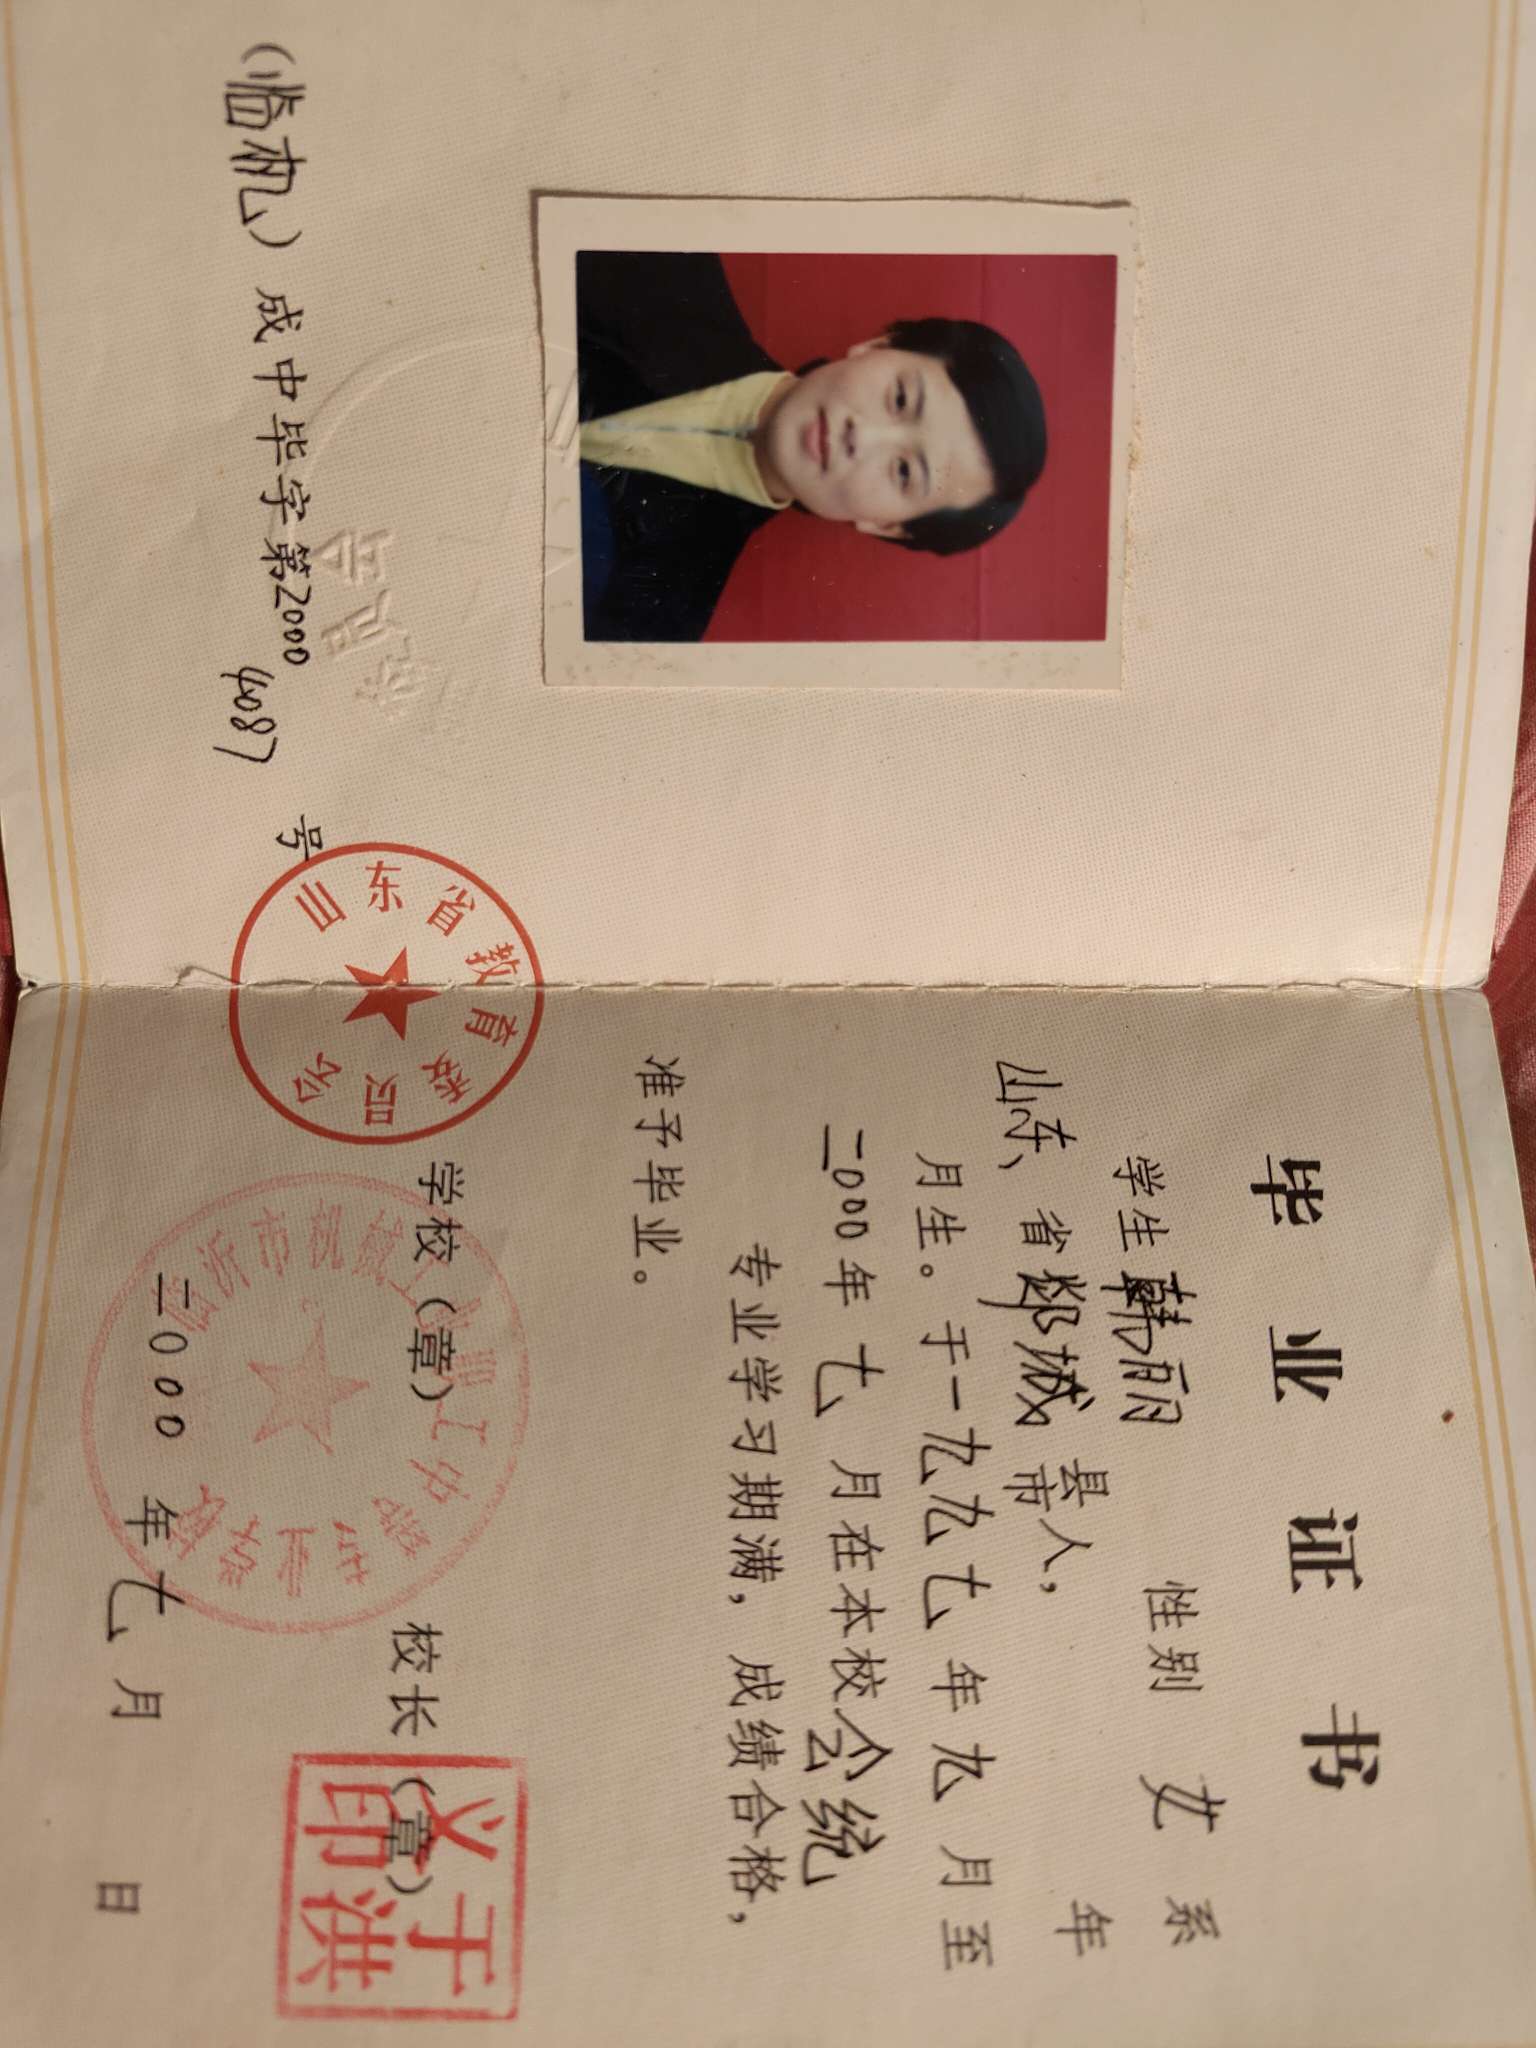 （临机）成中毕字第20004087号
山东省教育委员会
毕业证书
学生韩丽 性别 女 系
山东 省郯城 县市人， 年
月生。于一九九七年九月至
二000年七月在本校会统
专业学习期满，成绩合格，
准予毕业。
学校（章） 校长（章）
临沂市机械工业
于洪义印
二000年七月 日